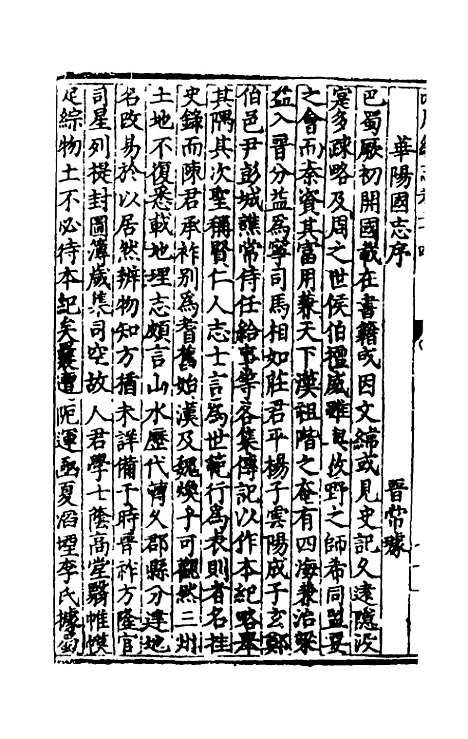 華陽國志序
晉常璩
巴蜀厥初開國載在書籍或因文緯或見史記久遠隱没
寔多疎略及周之世侯伯擅威雖與牧野之師希同盟要
之會而秦資其富用兼天下漢祖階之奄有四海梁
益及晉分益為寧司馬相如莊君平楊子雲陽成子玄鄭
伯邑尹彭城譙常侍任給事等各集傳記以作本紀略舉
其隅其次聖稱賢仁人志士言為世範行為表則者名挂
史錄而陳君承祚别為耆舊始漢及魏煥乎可觀然三州
土地不復悉載地理志頗言山水歷代轉久郡縣分建地
名改易於以居然辨物知方猶未詳備于時晉祚方隆官
司星列提封圖簿歲集司空故人君學士蔭高堂翳帷幙
足綜物土不必待本紀矣曩遭阨運函夏滔堙李氏據蜀